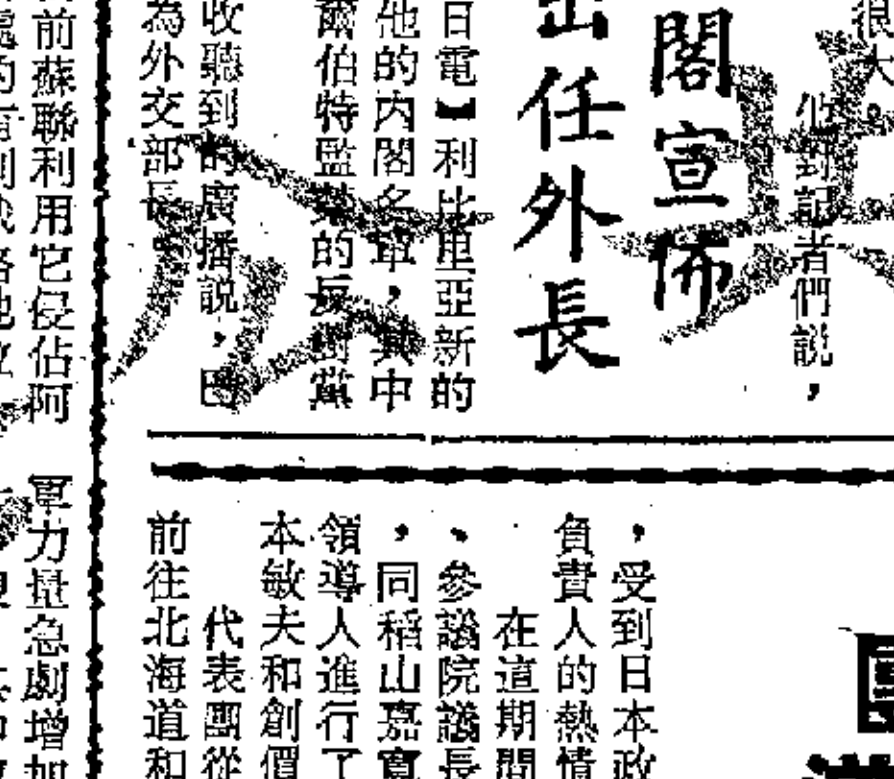 很大。
他對記者們說，
閣宣佈
出任外長
日電】利比里亞新的
他的內閣名單，其中
爾伯特監禁的反對黨
收聽到的廣播說，
為外交部長。
前蘇聯利用它侵佔阿
，受到日本政
負責人的熱情
在這期間
、參議院議長
，同稻山嘉寬
領導人進行了
本敏夫和創價
代表團從
前往北海道和
軍力量急劇增加